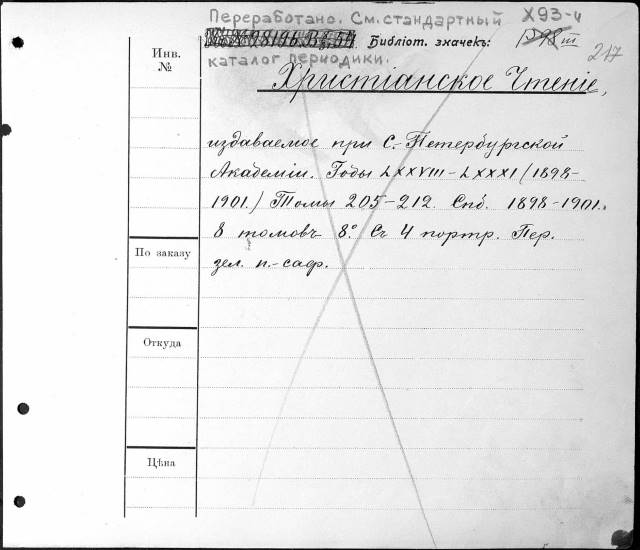 Переработано. См. стандартный Х93-4
Библіот. значекъ: 217
каталог периодики.
Инв.
№
Христіанское Чтеніе,
издаваемое при С.-Петербургской
Академіи. Годы LXXVIII-LXXXI (1898-
1901.) Томы 205-212. Спб. 1898-1901.
8 томовъ 8º. Съ 4 портр. Пер.
зел. п.-саф.
По заказу
Откуда
Цѣна